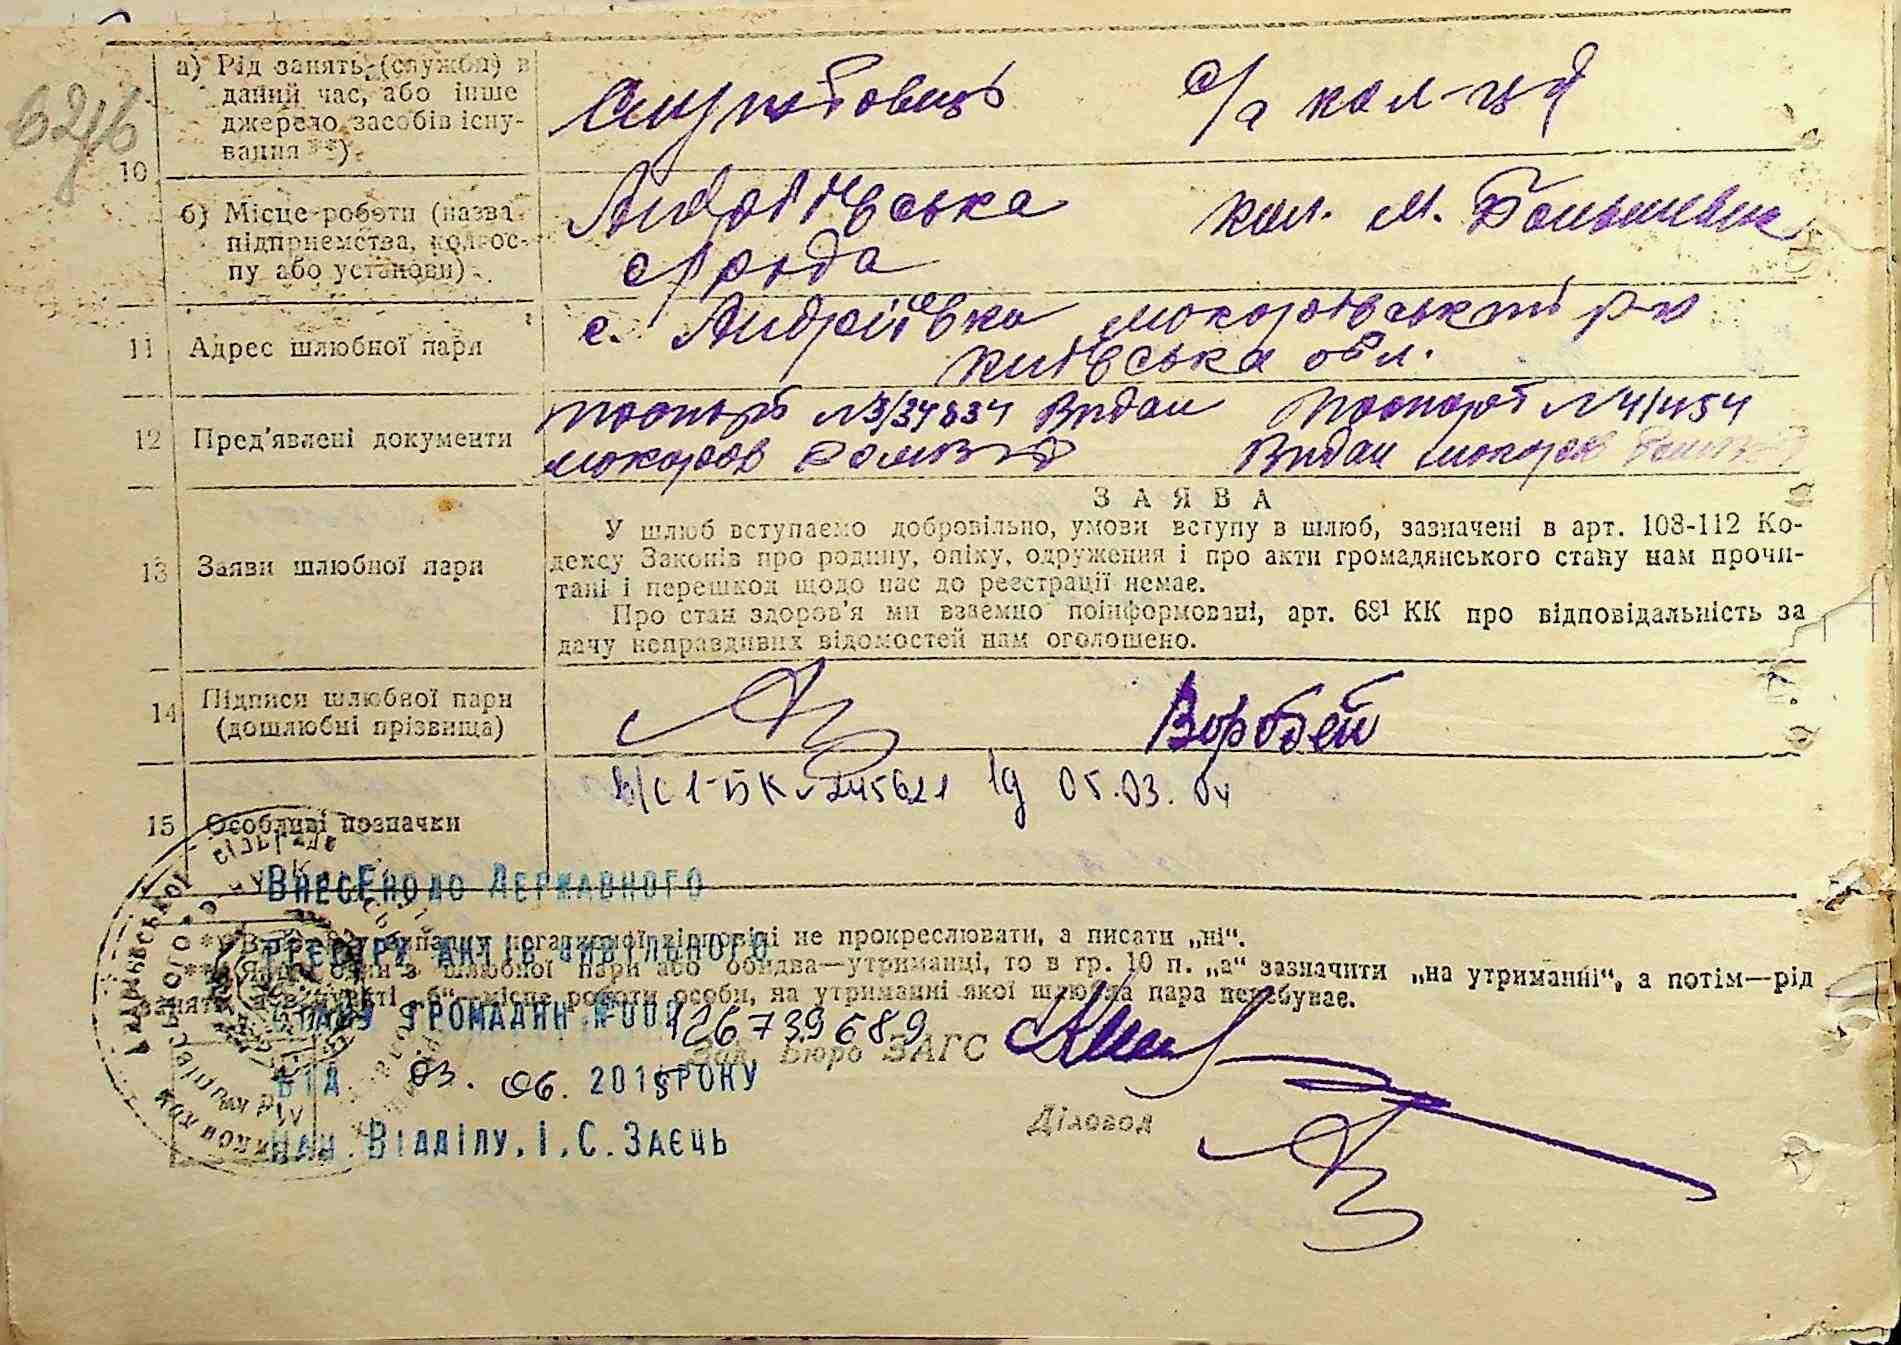 а) Рід занять (служби) в
даний час, або інше
джерело засобів існу-
вання **)
10
Службовець
с/г кол-ця
б) Місце роботи (назва
підприємства, колгос-
пу або установи)
Андріївська
с/рада
кол. М. Большевик
11 Адрес шлюбної пари
с. Андріївка Макарівський р-н
Київська обл.
12 Пред'явлені документи
Паспорт N3/34634 Видан
Паспорт N4/1454
Видан
13 Заяви шлюбної пари
ЗАЯВА
У шлюб вступаємо добровільно, умови вступу в шлюб, зазначені в арт. 108-112 Ко-
дексу Законів про родину, опіку, одруження і про акти громадянського стану нам прочи-
тані і перешкод щодо нас до реєстрації немає.
Про стан здоров'я ми взаємно поінформовані, арт. 68¹ КК про відповідальність за
дачу неправдивих відомостей нам оголошено.
14 Підписи шлюбної пари
(дошлюбні прізвища)
Воробей
15 Особливі позначки
1-БК 245621 05.03.04
ВНЕСЕНО ДО ДЕРЖАВНОГО
РЕЄСТРУ АКТІВ ЦИВІЛЬНОГО
СТАНУ ГРОМАДЯН №00126739689
ВІД 03. 06. 2015 РОКУ
НАЧ. ВІДДІЛУ, І.С. ЗАЄЦЬ
випадку негативної відповіді не прокреслювати, а писати „ні“.
шлюбної пари або обидва—утриманці, то в гр. 10 п. „а“ зазначити „на утриманні“, а потім—рід
„б“—місце роботи особи, на утриманні якої шлюбна пара перебуває.
Зав. Бюро ЗАГС
Діловод